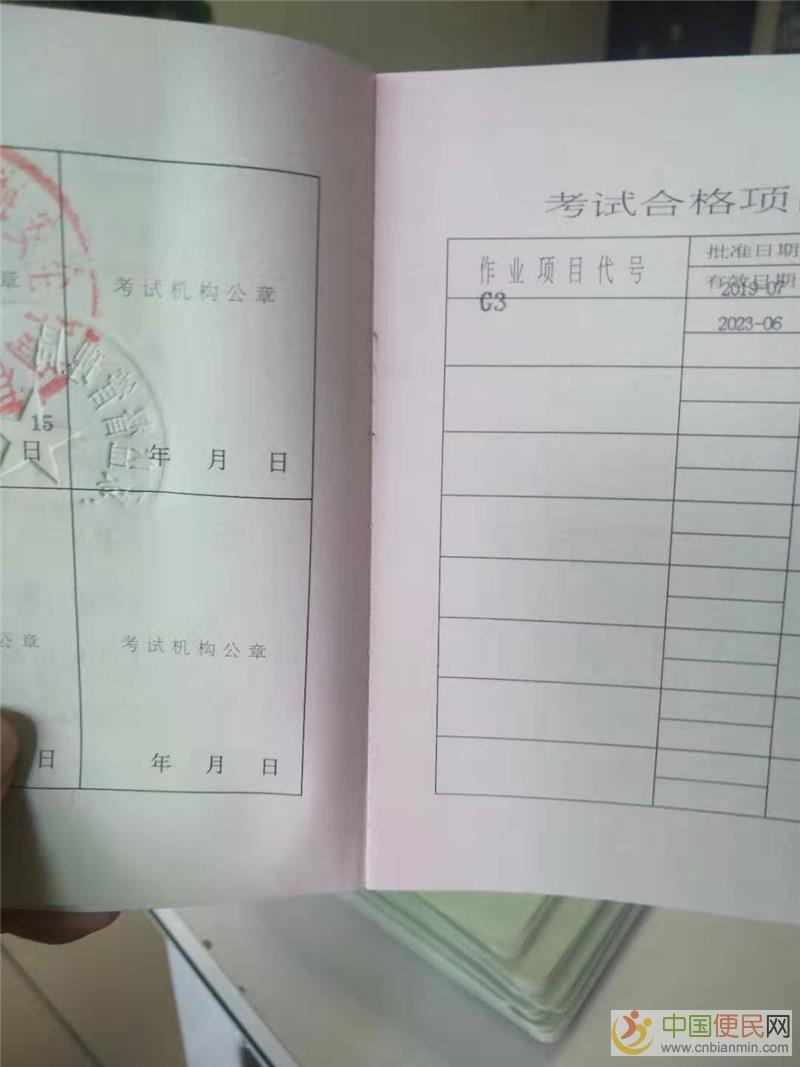 章
考试机构公章
15
日
年 月 日
公章
考试机构公章
日
年 月 日
考试合格项
作业项目代号
批准日期
有效日期
G3
2019-07
2023-06
中国便民网
www.cnbianmin.com